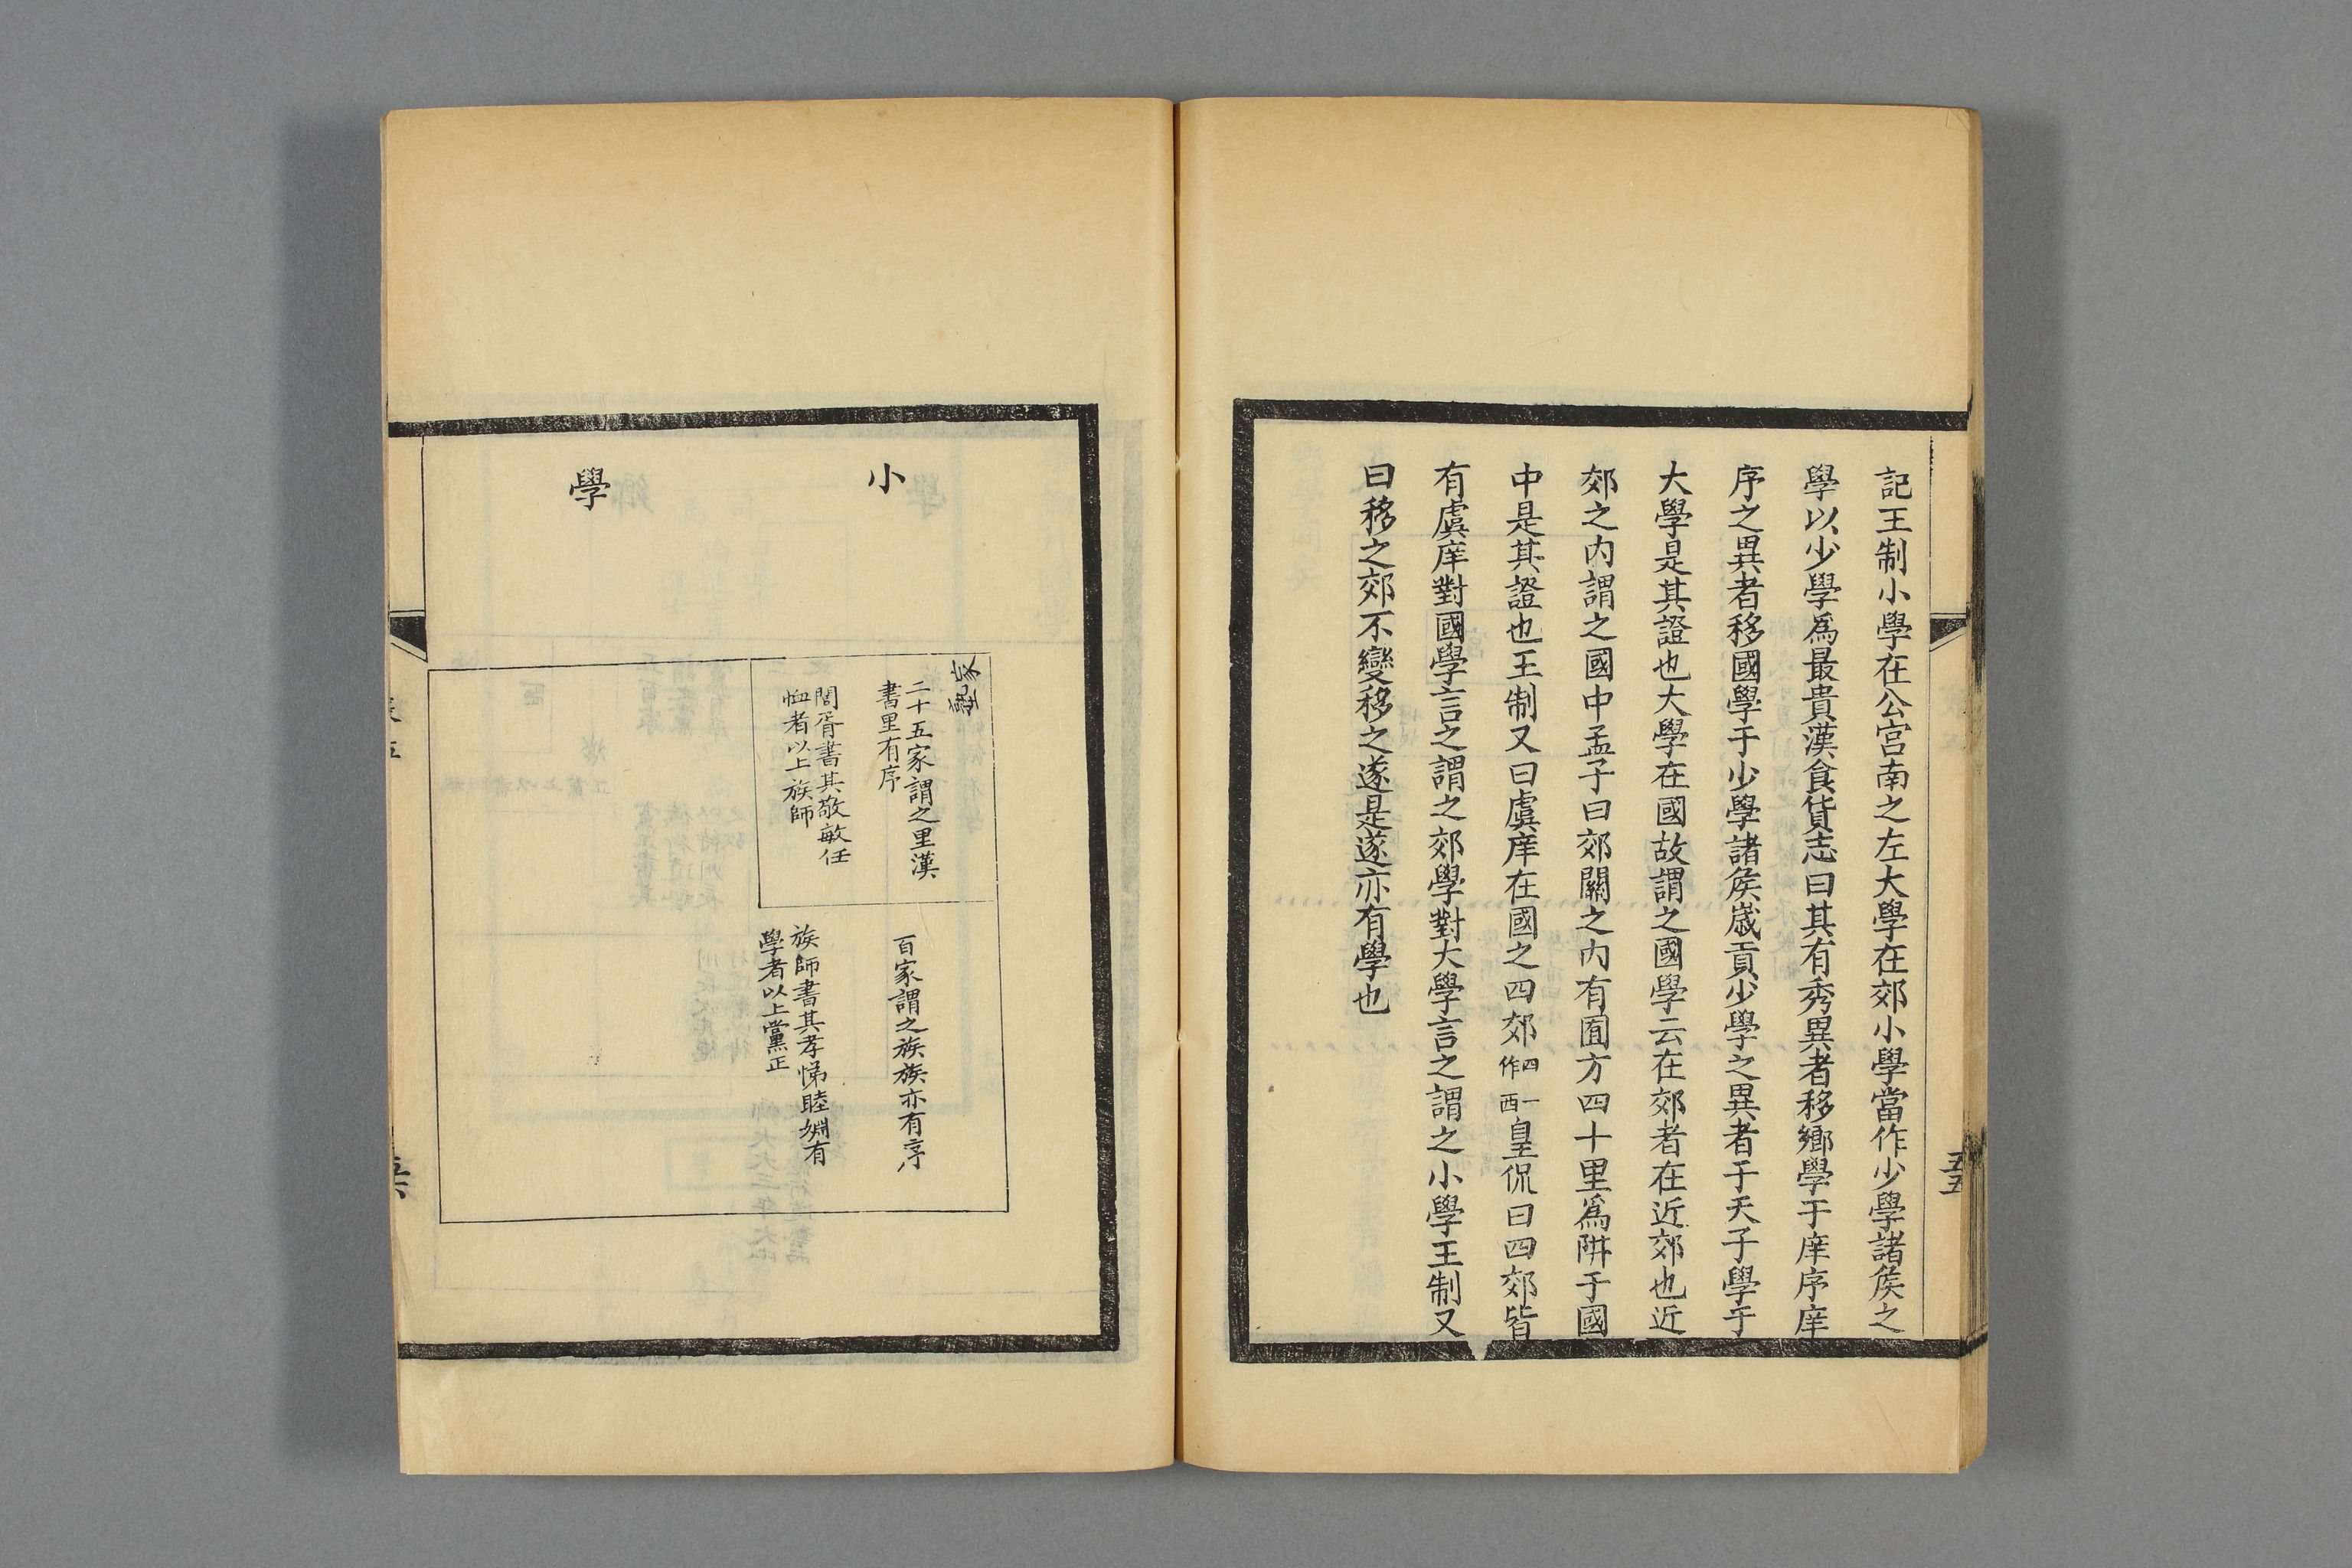 記王制小學在公宮南之左大學在郊小學當作少學諸矦之
學以少學爲最貴漢食貨志曰其有秀異者移鄉學于庠序庠
序之異者移國學于少學諸矦歲貢少學之異者于天子學于
大學是其證也大學在國故謂之國學云在郊者在近郊也近
郊之内謂之國中孟子曰郊關之内有囿方四十里爲阱于國
中是其證也王制又曰虞庠在國之四郊四一作西皇侃曰四郊皆
有虞庠對國學言之謂之郊學對大學言之謂之小學王制又
曰移之郊不變移之遂是遂亦有學也
五五
小
學
家塾
二十五家謂之里漢
書里有序
閭胥書其敬敏任
恤者以上族師
百家謂之族族亦有序
族師書其孝悌睦婣有
學者以上黨正